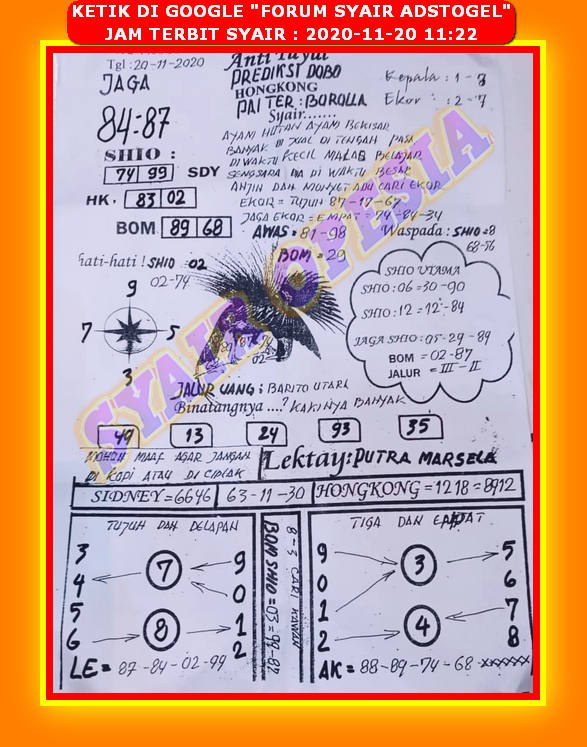 KETIK DI GOOGLE "FORUM SYAIR ADSTOGEL"
JAM TERBIT SYAIR : 2020-11-20 11:22
Tgl : 20-11-2020
Anti Tayal
JAGA
PREDIKSI DOBO
HONGKONG
Kepala : 1-8
PAITER : BOROLLA
Ekor : 2-7
84:87
Syair.......
AYAM HUTAN AYAM BEKISAR
BANYAK DI JUAL DI TENGAH PASA
DI WAKTU KECIL MALAS BELAJAR
SENGSARA DIA DI WAKTU BESAR
ANJIN DAN MONYET ADU CARI EKOR
EKOR = TUJUH 87-17-67
JAGA EKOR = EMPAT = 74-84-34
SHIO :
74 99 SDY
HK. 83 02
BOM 89 68
AWAS = 81-98
Waspada : SHIO = 8
68-76
Hati-hati ! SHIO = 02
02-74
BOM = 29
9
7 5
3
SHIO UTAMA
SHIO : 06 = 30-90
SHIO : 12 = 12-84
JAGA SHIO : 05-29-89
BOM = 02-87
JALUR = III - II
JALUR UANG ; BARITO UTARA
Binatangnya ....? KAKINYA BANYAK
SYAIR OPESIA
49 13 24 93 35
MOHON MAAF AGAR JANGAN
DI KOPI ATAU DI CIPLAK
Lektay : PUTRA MARSELA
SIDNEY = 6646 63-11-30 HONGKONG = 1218 = 8912
TUJUH DAN DELAPAN
3
4
5
6
7
8
9
0
1
2
LE = 87-84-02-99
8-3 CARI KAWAN
BOM SHIO = 03 = 99-87
TIGA DAN EMPAT
9
0
1
2
3
4
5
6
7
8
AK = 88-89-74-68-xxxxxx